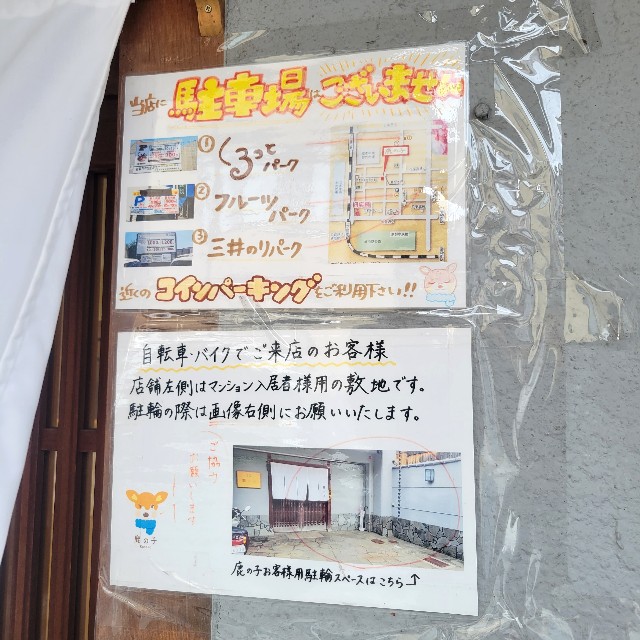 当店に駐車場はございません
① くるっとパーク
② フルーツパーク
③ 三井のリパーク
近くのコインパーキングをご利用下さい!!
自転車・バイクでご来店のお客様
店舗左側はマンション入居者様用の敷地です。
駐輪の際は画像右側にお願いいたします。
ご協力
お願いします
鹿の子
鹿の子お客様用駐輪スペースはこちら↑